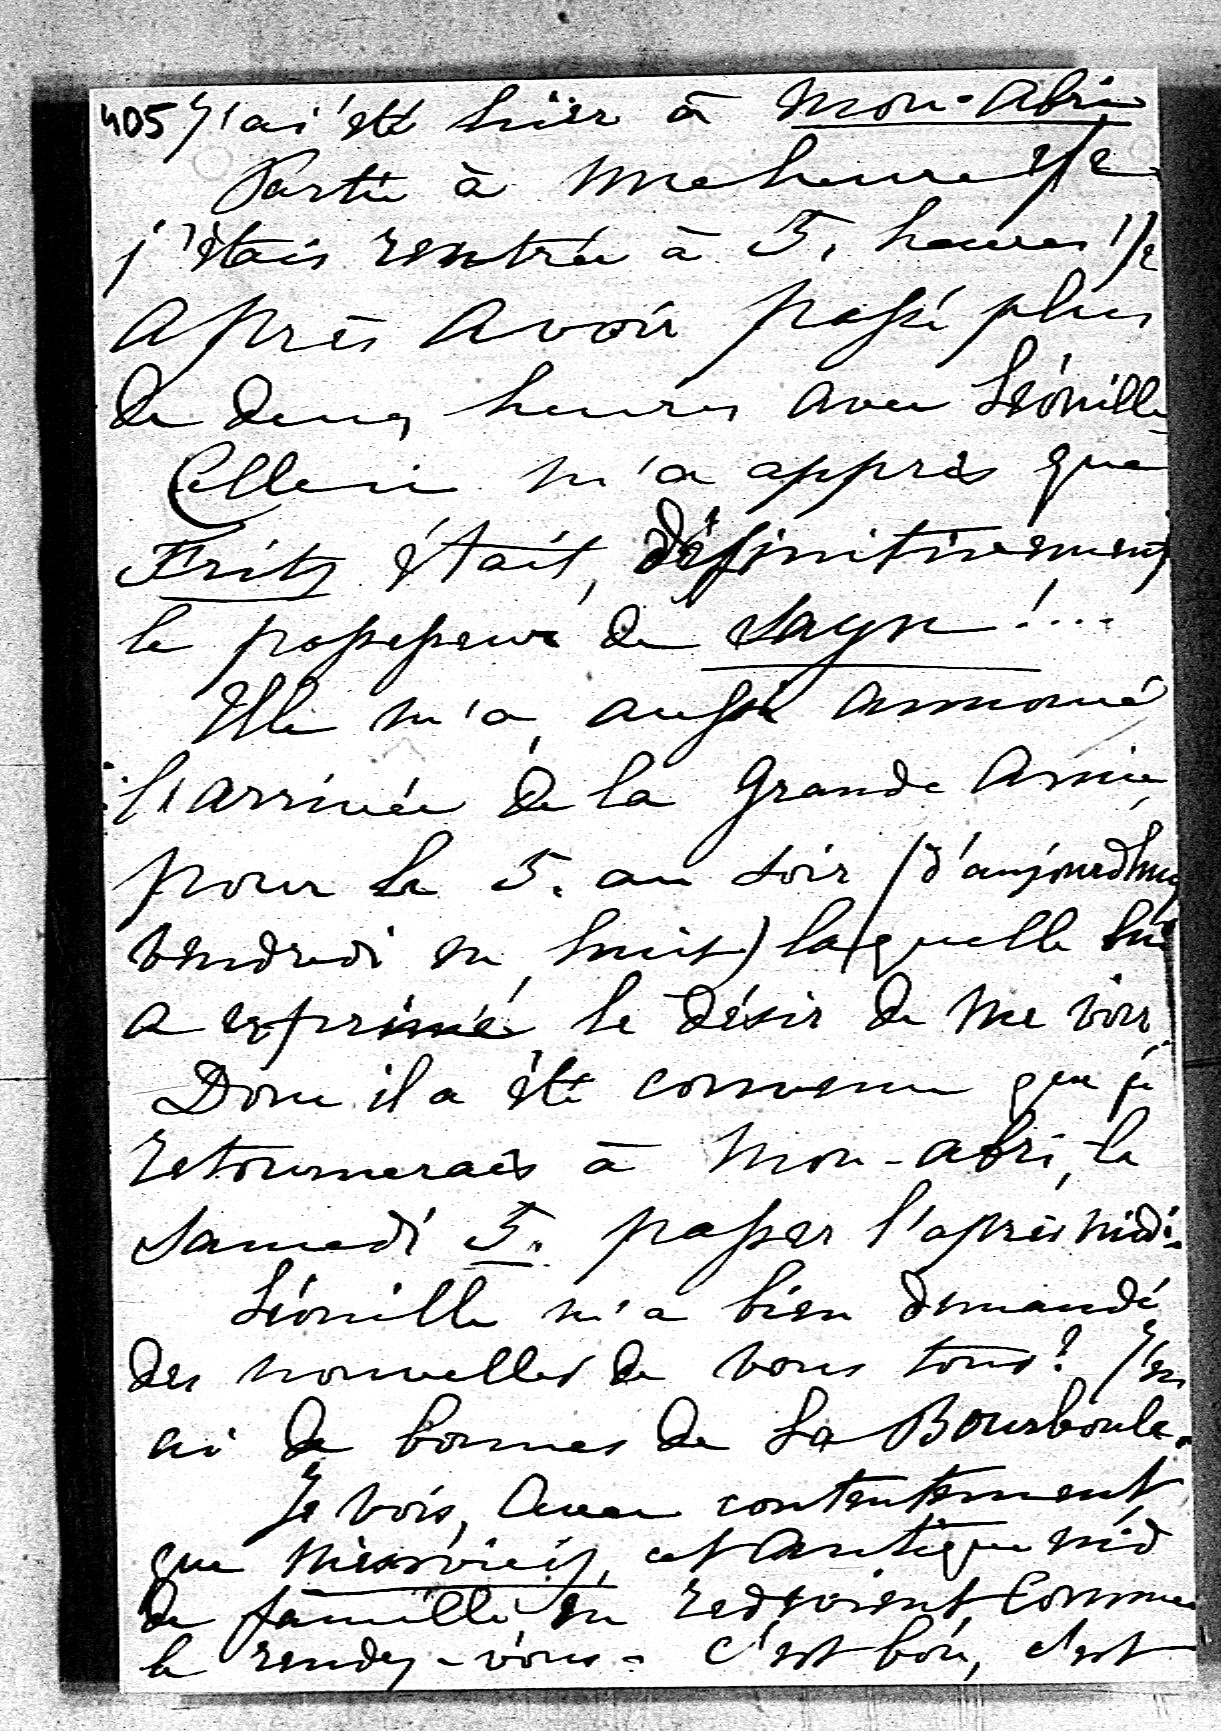 405 J'ai été hièr à Mon-Abri
Partie à une heure 1/2
j'étais rentrée à 5. heures 1/2
après avoir passé plus
de deux heures avec Léonille
Celleci m'a apprès que
Fritz était, définitivement
le possesseur de Sayn!...
Elle m'a, aussi annoncé
l'arrivée de la Grande Amie,
pour le 5. au soir (d'aujourdhuy
vendredi en huit) laquelle lui
a exprimé, le désir de me voir.
Donc il a été convenu que je
retournerais à Mon-abri, le
Samedi 5. passer l'après midi.
Léonille m'a bien demandé
des nouvelles de vous tous! J'en
ai de bonnes de La Bourboule.
Je vois, avec contentement
que cet antique nid
de famille en redevient comme
le rendez-vous. c'est bon, c'est